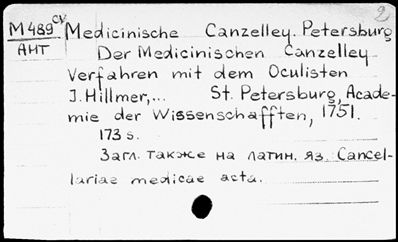 2
M 489 CV Medicinische Canzelley. Petersburg
АНТ Der Medicinischen Canzelley
Verfahren mit dem Oculisten
J. Hillmer,... St. Petersburg, Acade-
mie der Wissenschafften, 1751.
173 s.
Загл. также на латин. яз. Cancel-
lariae medicae acta.